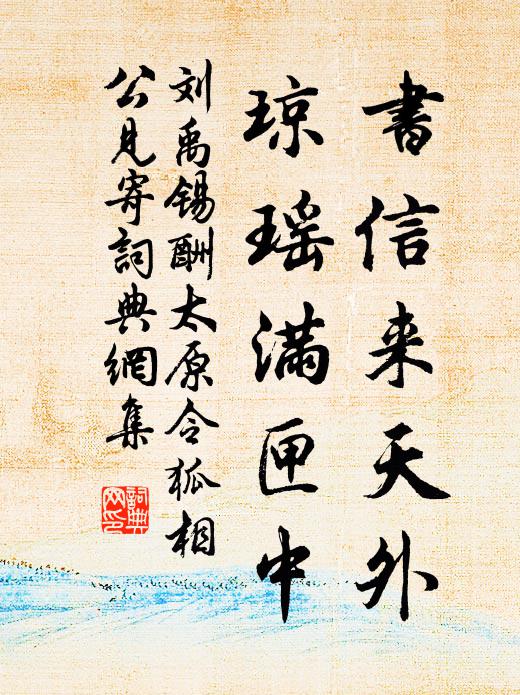 書信来天外
琼瑶满匣中
刘禹锡酬太原令狐相
公見寄詞典網集
詞典
网印